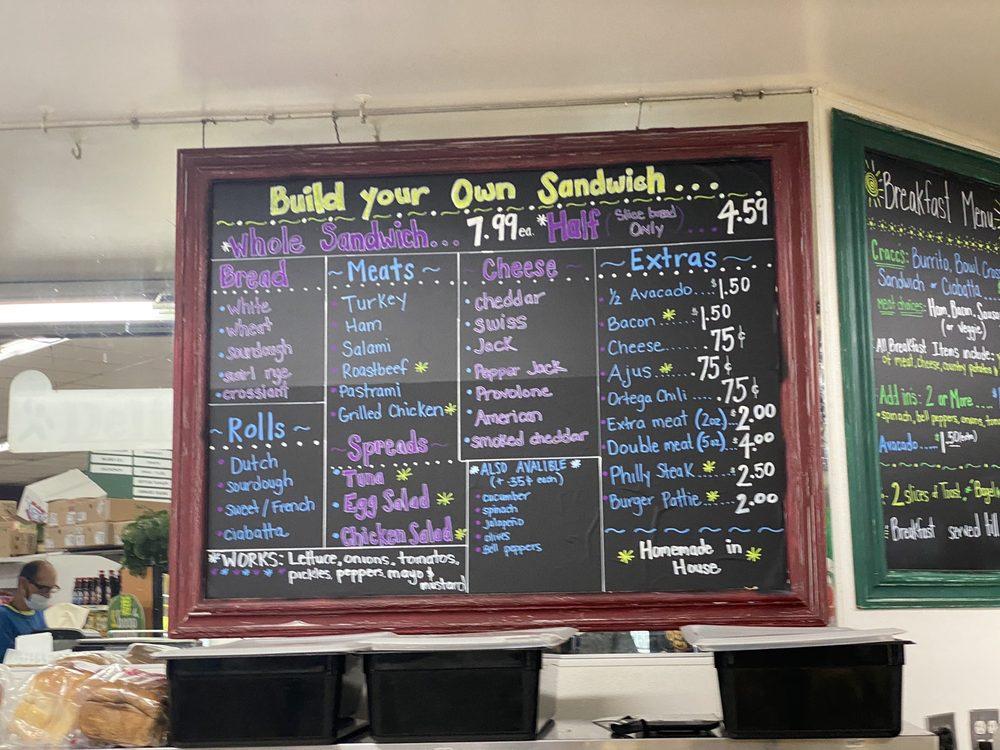 Build your Own Sandwich...
*Whole Sandwich... 7.99 ea. *Half (Slice bread Only) ... 4.59
Bread
• White
• wheat
• sourdough
• swirl rye
• crossiant
~ Rolls ~
• Dutch
• sourdough
• sweet/French
• ciabatta
~ Meats ~
Turkey
Ham
Salami
Roastbeef *
Pastrami
Grilled Chicken *
~ Spreads ~
• Tuna *
• Egg Salad *
• Chicken Salad *
*WORKS: Lettuce, onions, tomatos,
pickles, peppers, mayo &
mustard
~ Cheese ~
• cheddar
• swiss
• Jack
• Pepper Jack
• Provolone
• American
• smoked cheddar
*ALSO AVALIBLE*
(+.35¢ each)
• cucumber
• spinach
• jalapeno
• olives
• Bell peppers
~ Extras ~
• ½ Avacado....$1.50
• Bacon * $1.50
• Cheese....... 75¢
• Ajus. * ....75¢
• Ortega Chili .... 75¢
• Extra meat (2oz).$2.00
• Double meat (5oz).$4.00
• Philly Steak * ..$2.50
• Burger Pattie. * ...2.00
* Homemade in *
House
Breakfast Menu
Burrito, Bowl,
Sandwich or Ciabatta
meat choices: Ham, Bacon,
(or veggie)
All Breakfast Items include:
of meat, cheese, country potatoes &
Add ins: 2 or More....
• spinach, bell peppers, onions,
Avocado...$1.50
• 2 slices of Toast, or
Breakfast served till